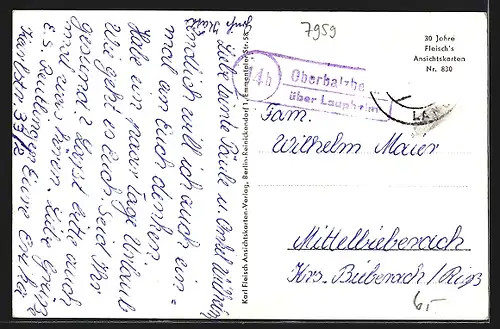 7959
30 Jahre
Fleisch's
Ansichtskarten
Nr. 830
14b
Oberbalzhe
über Laupheim
LA
Fam.
Wilhelm Maier
Mittelbiberach
Krs. Biberach/Riß
6,-
Karl Fleisch Ansichtskarten-Verlag, Berlin-Reinickendorf 1, Emmentaler Str. 58
Liebe Tante Paule u. Onkel Wilhelm
Endlich will ich auch ein-
mal an Euch denken.
Habe ein paar Tage Urlaub
Wie geht es Euch Seid Ihr
gesund? Lasst bitte auch
mal was hören. Liebe Grüße
Eure
Reutlingen